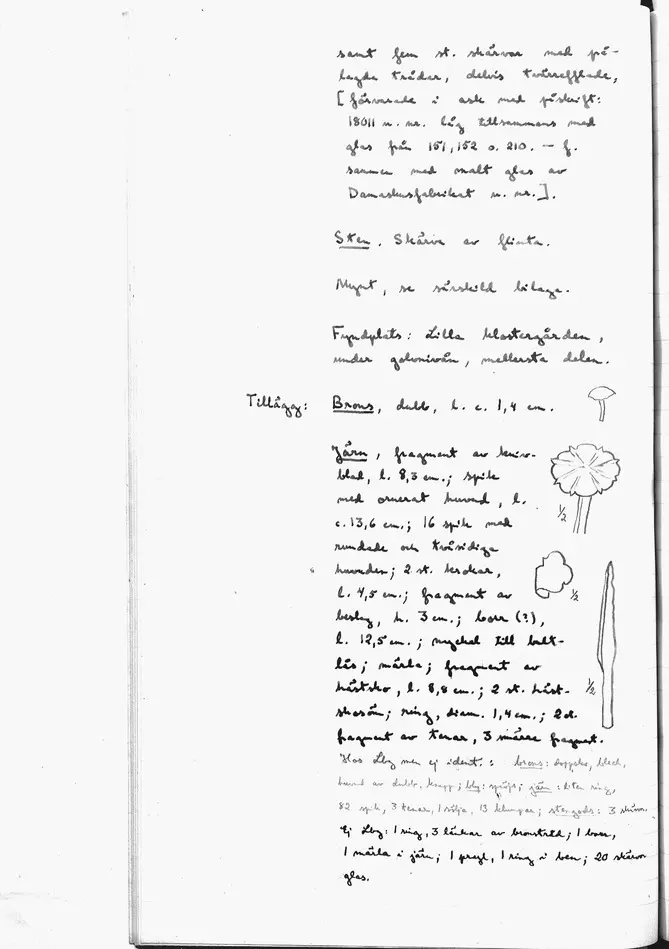 samt fem st. skärvor med på-
lagda trådar, delvis tvärrefflade,
[förvarade i ask med påskrift:
18011 u. nr. låg tillsammans med
glas från 151, 152 o. 210. — f.
samman med malt glas av
Damaskusfabrikat u. nr.].
Sten, Skärva av flinta.
Mynt, se särskild bilaga.
Fyndplats: Lilla klostergården,
under golvnivån, mellersta delen.
Tillägg: Brons, dubb, l. c. 1,4 cm.
Järn, fragment av kniv-
blad, l. 8,3 cm.; spik
med ornerat huvud, l.
c. 13,6 cm.; 16 spik med
1/2
rundade och tvåsidiga
huvuden; 2 st. krokar,
l. 4,5 cm.; fragment av
1/2
beslag, h. 3 cm.; borr (?),
l. 12,5 cm.; nyckel till bult-
lås; märla; fragment av
hästsko, l. 8,8 cm.; 2 st. häst-
1/2
skosöm; ring, diam. 1,4 cm.; 2 st.
fragment av tenar, 3 smärre fragment.
Hos Lbg men ej ident.: brons: doppsko, bleck,
huvud av dubb, knapp; bly: ; järn: liten ring,
82 spik, 3 tenar, 1 sölja, 13 klumpar; stengods: 3 skärvor.
Ej Lbg: 1 ring, 3 länkar av bronstråd; 1 borr,
1 märla i järn; 1 pryl, 1 ring i ben; 20 skärvor
glas.